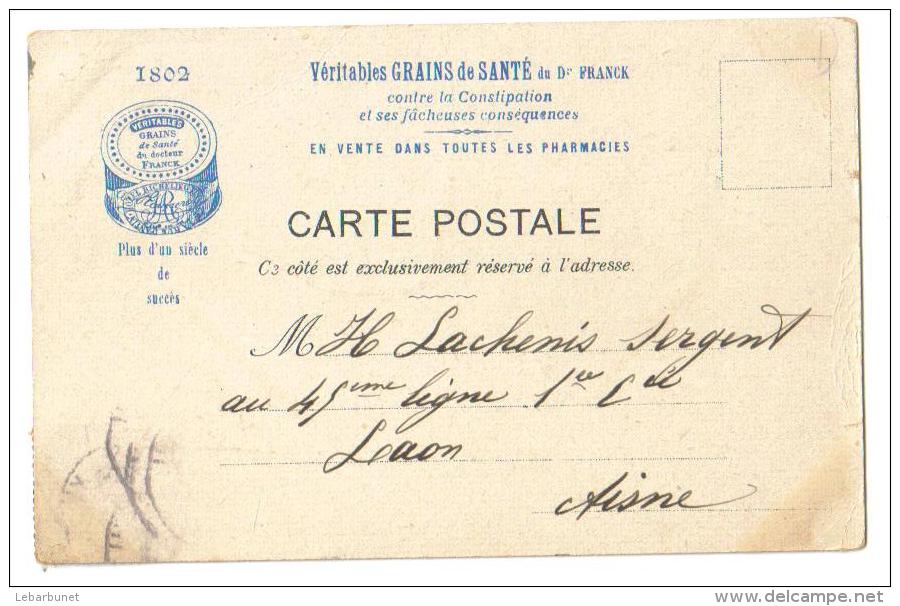 1802
VÉRITABLES
GRAINS
de Santé
du docteur
FRANCK
Plus d'un siècle
de
succès
Véritables GRAINS de SANTÉ du Dr FRANCK
contre la Constipation
et ses fâcheuses conséquences
EN VENTE DANS TOUTES LES PHARMACIES
CARTE POSTALE
Ce côté est exclusivement réservé à l'adresse.
M H Lachenis Sergent
au 45eme ligne 1re Cie
Laon
Aisne
Lebarbunet
www.delcampe.net